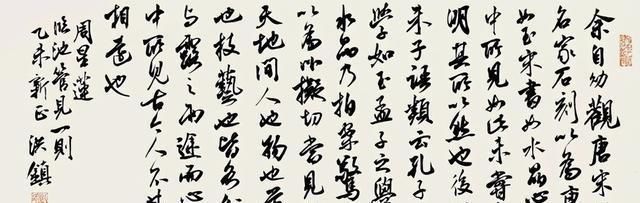 余自幼觀唐宋
名家石刻以為唐
如玉宋書如水晶心
中所見如此未嘗
明其所以然也後
朱子語類云孔子
學如玉孟子之學
水晶乃拍案驚
以為比擬切當見
天地間人也物也
也技藝也皆各
與露之兩途而心
中所見古今人不
相遠也
周星蓮
臨池管見一則
乙未新正洪鎮